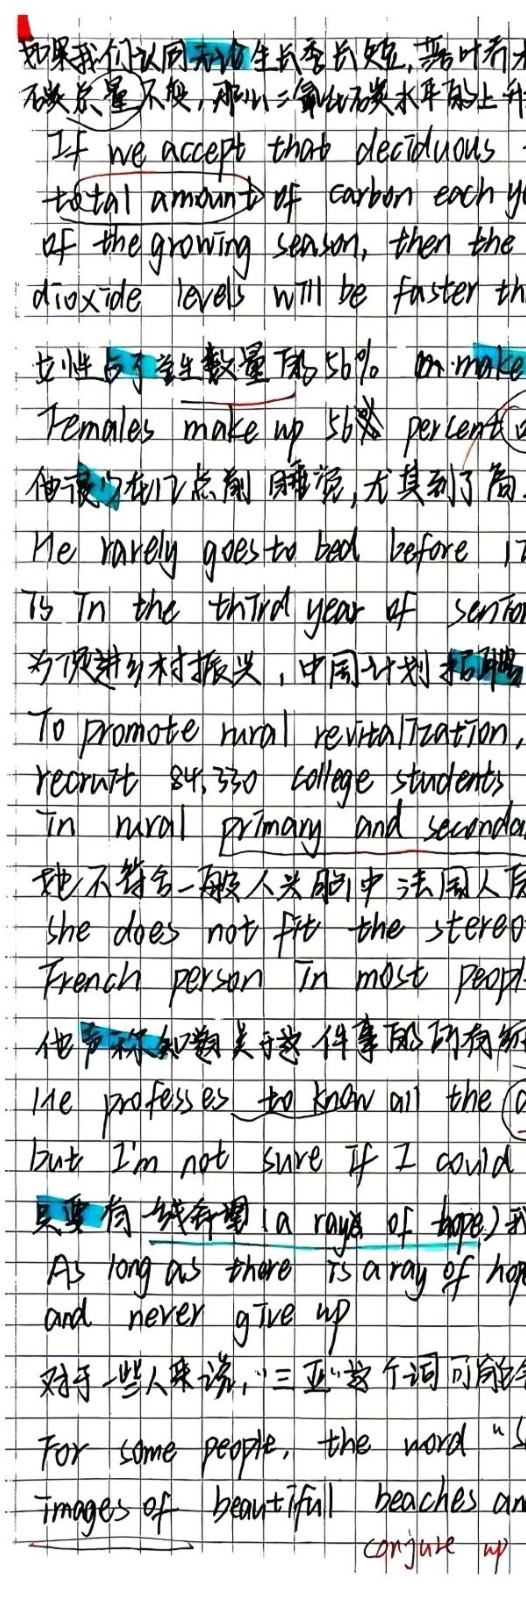 如果我们认同无论生长季长短,落叶乔木
碳总量不变,那么二氧化碳水平的上升
If we accept that deciduous
total amount of carbon each ye
of the growing season, then the
dioxide levels will be faster th
女性占了学生数量的56% make
Females make up 56% percent
他很少在12点前睡觉,尤其到了高
He rarely goes to bed before 12
is in the third year of senior
为了促进乡村振兴,中国计划招聘
To promote rural revitalization,
recruit 84,330 college students
in rural primary and seconda
她不符合一般人头脑中法国人
she does not fit the stereo
French person in most peopl
他声称知道关于这件事的所有细
He professes to know all the
but I'm not sure if I could
只要有一线希望(a ray of hope)我
As long as there is a ray of hop
and never give up
对于一些人来说,"三亚"这个词可能会
For some people, the word "S
images of beautifull beaches an
conjure up